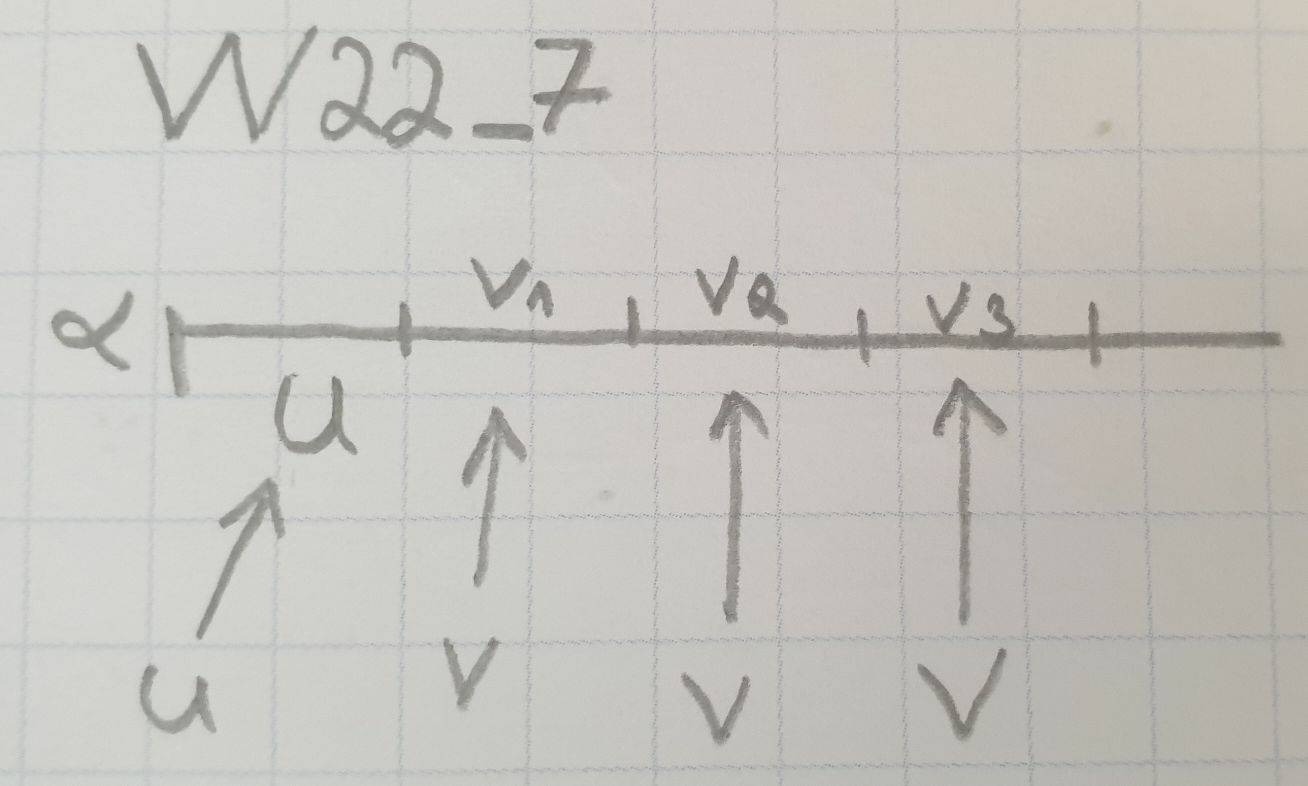 W22_7
α v1 v2 v3
u
u v v v